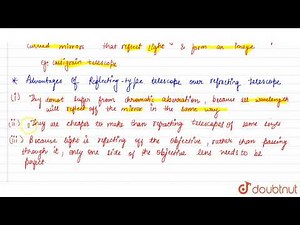 curved mirror that reflect light & to form an image
eg cassegrain telescope
* Advantages of Reflecting-type telescope over refracting telescope
(i) They donot suffer from chromatic aberration, because all wavelength
will reflect off the mirror in the same way
(ii) They are cheaper to make than refracting telescopes of same size
(iii) Because light is reflecting off the objective, rather than passing
through it, only one side of the objective lens needs to be
doubtnut